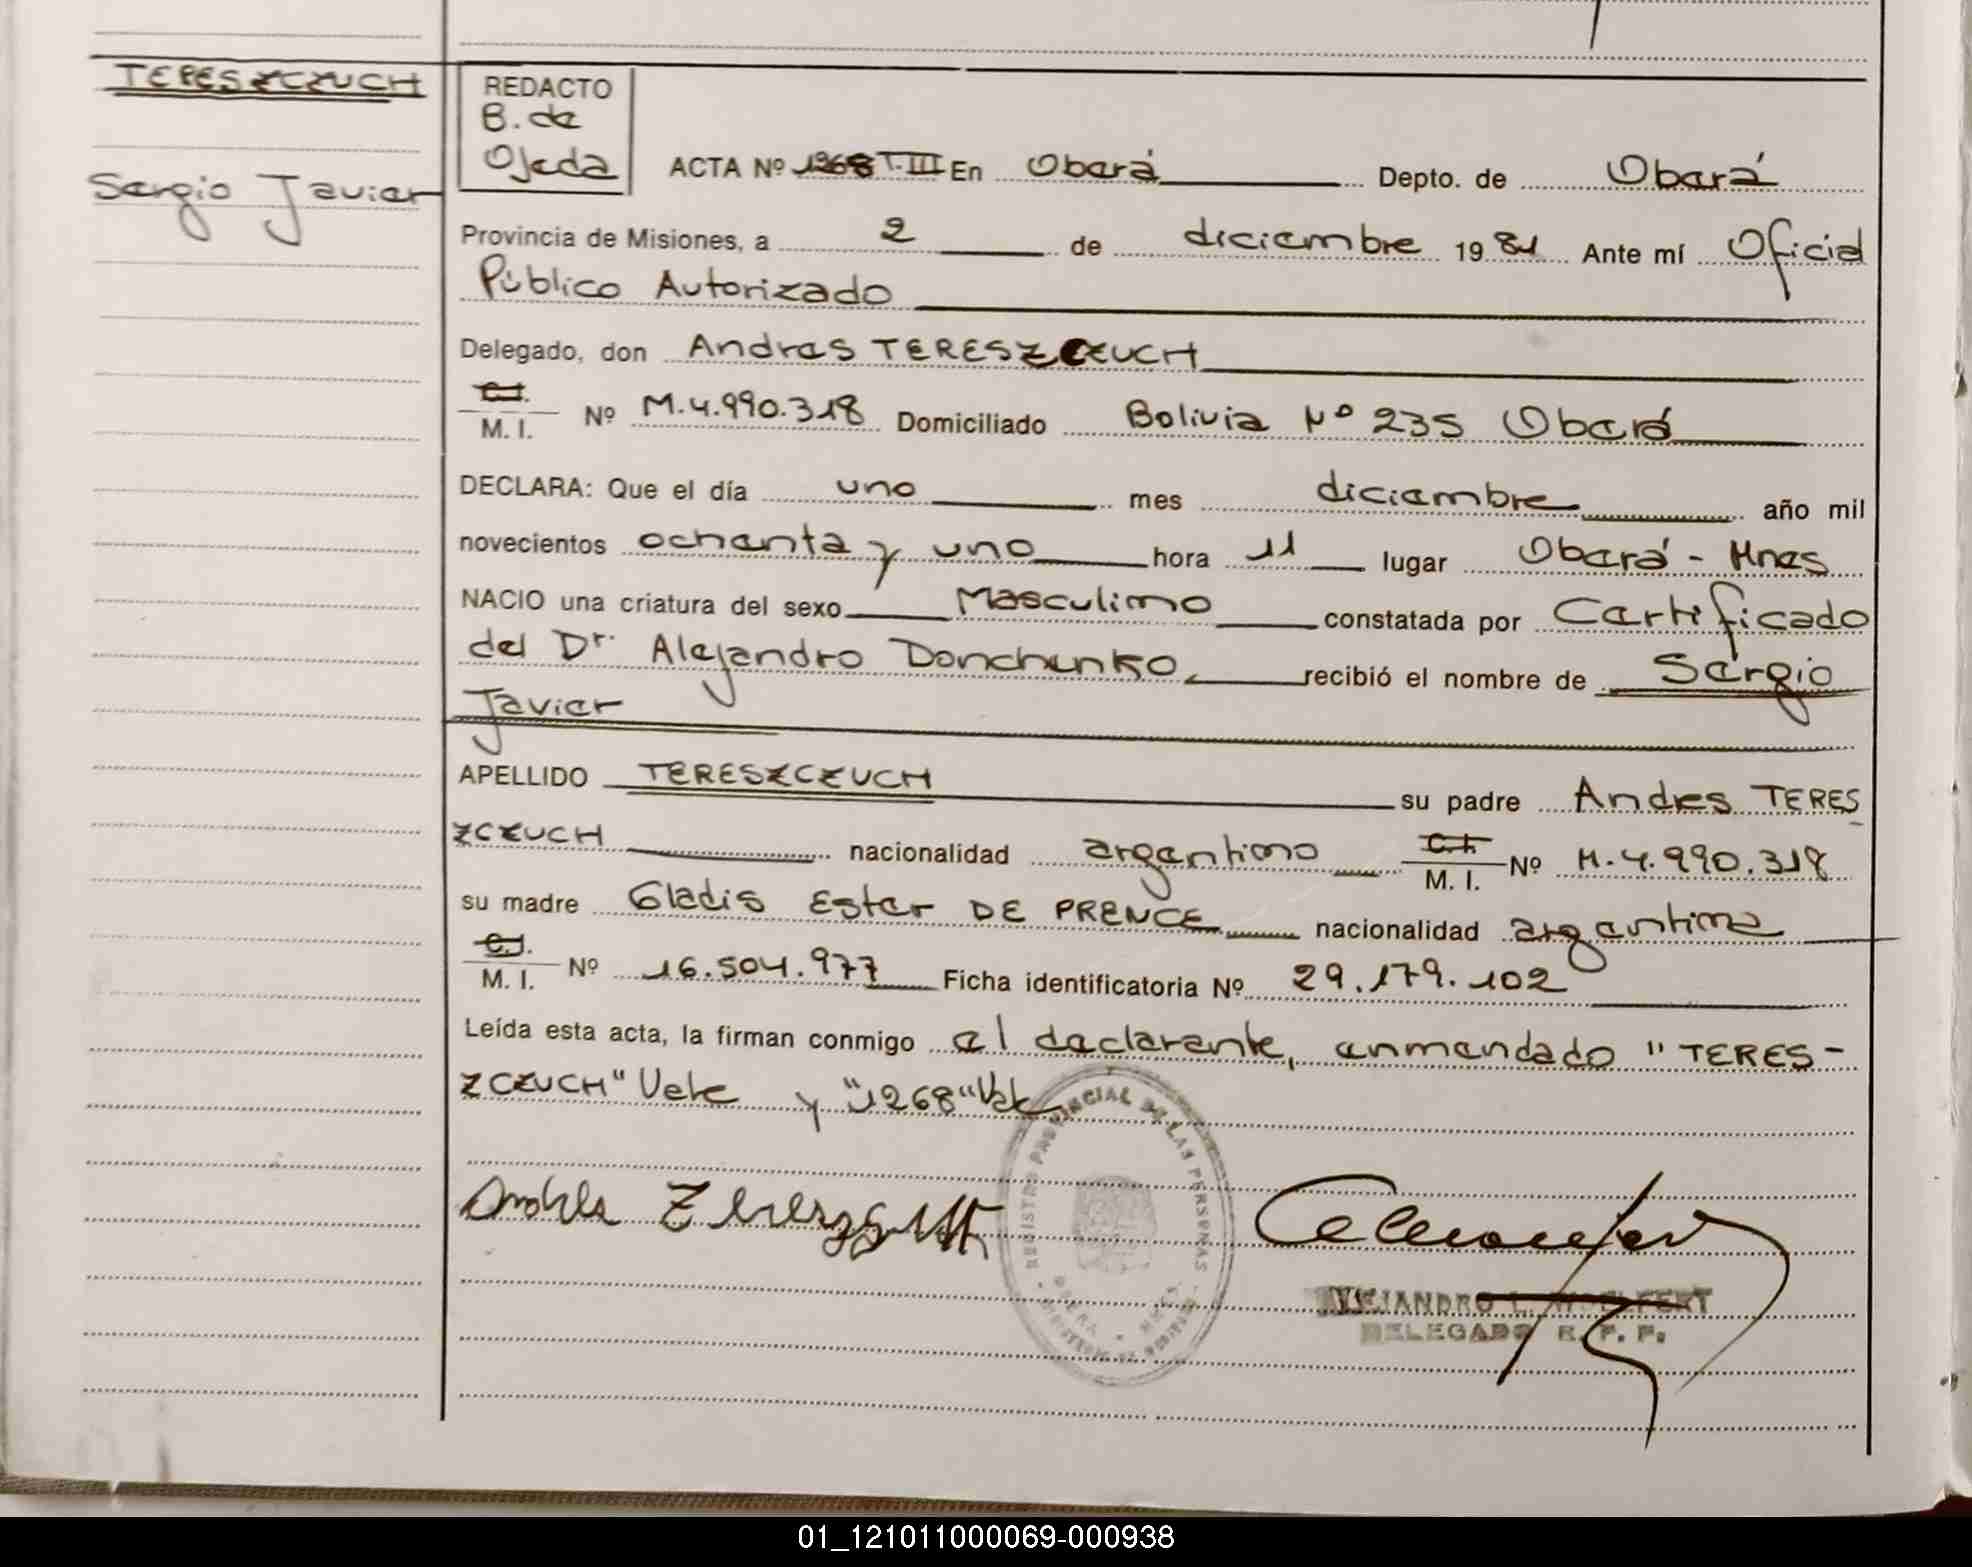 TERESZCZUCH
Sergio Javier
REDACTO
B. de
Ojeda
ACTA Nº 1268 T-III En Oberá Depto. de Oberá
Provincia de Misiones, a 2 de diciembre 1981 Ante mí Oficial
Público Autorizado
Delegado, don Andres TERESZCZUCH
C.I.
M. I. Nº M.4.990.318 Domiciliado Bolivia Nº 235 Oberá
DECLARA: Que el día uno mes diciembre año mil
novecientos ochenta y uno hora 11 lugar Oberá - Mnes
NACIO una criatura del sexo Masculino constatada por Certificado
del Dr. Alejandro Donchenko recibió el nombre de Sergio
Javier
APELLIDO TERESZCZUCH su padre Andres TERES
ZCZUCH nacionalidad argentino C.I. M. I. Nº M.4.990.318
su madre Gladis Ester DE PRENCE nacionalidad argentina
C.I.
M. I. Nº 16.504.977 Ficha identificatoria Nº 29.179.102
Leída esta acta, la firman conmigo el declarante, enmendado "TERES-
ZCZUCH" Vale y "1268" Vale
REGISTRO PROVINCIAL DE LAS PERSONAS
OBERA
ALEJANDRO L. WOELFERT
DELEGADO R. P. P.
01_121011000069-000938